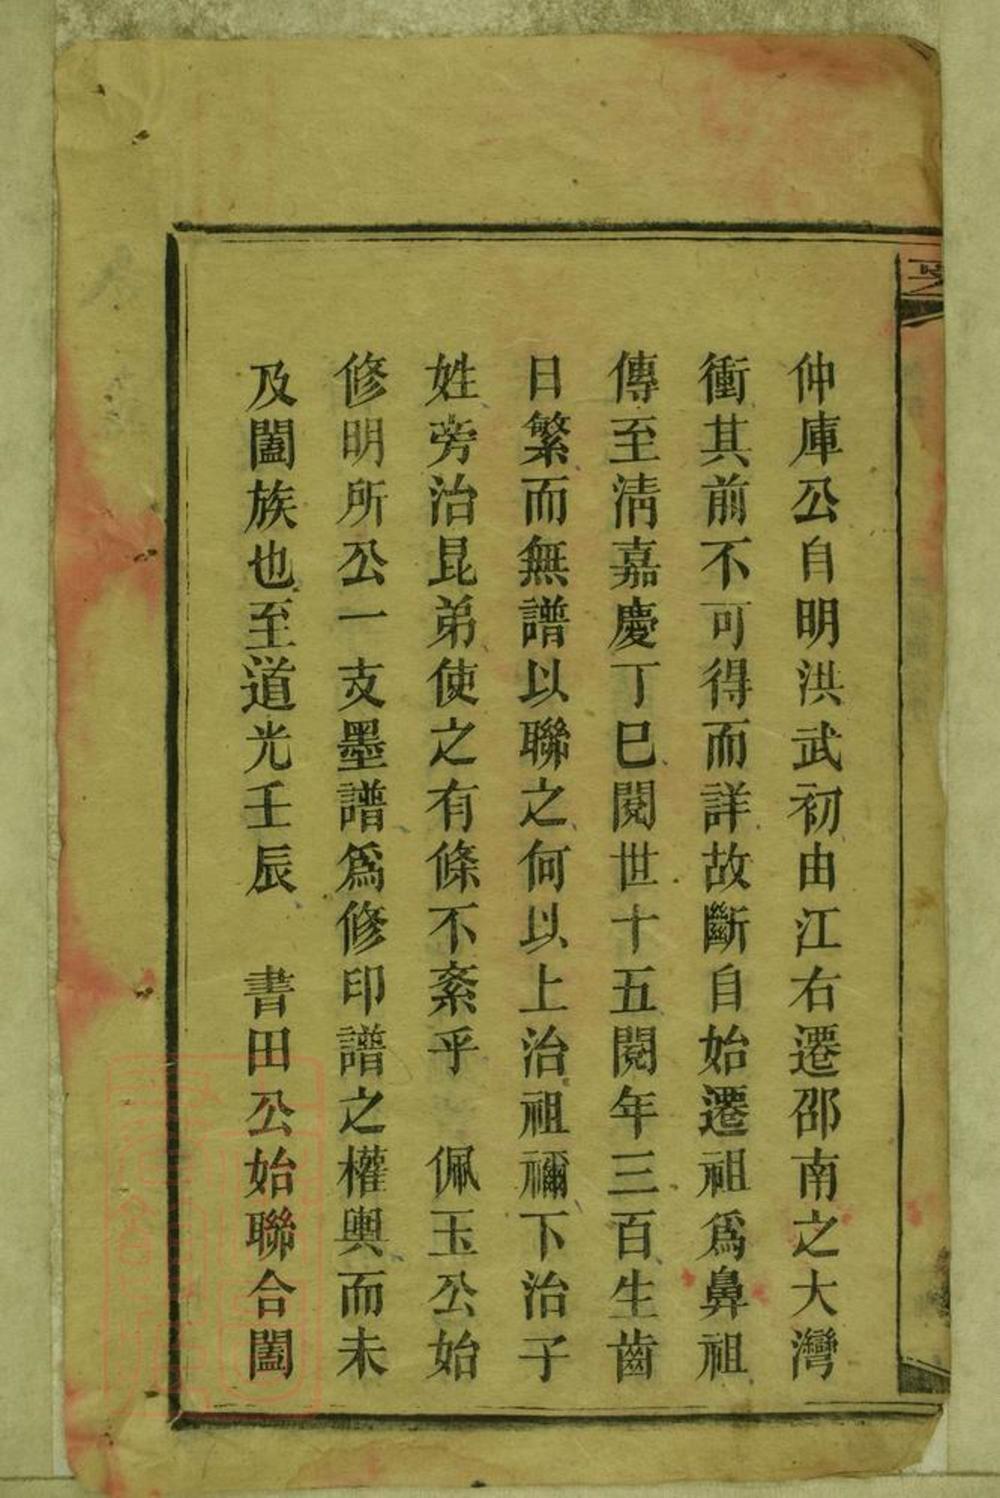 仲庫公自明洪武初由江右遷邵南之大灣
衝其前不可得而詳故斷自始遷祖爲鼻祖
傳至淸嘉慶丁巳閱世十五閱年三百生齒
日繁而無譜以聯之何以上治祖禰下治子
姓旁治昆弟使之有條不紊乎　佩玉公始
修明所公一支墨譜爲修印譜之權輿而未
及闔族也至道光壬辰　書田公始聯合闔